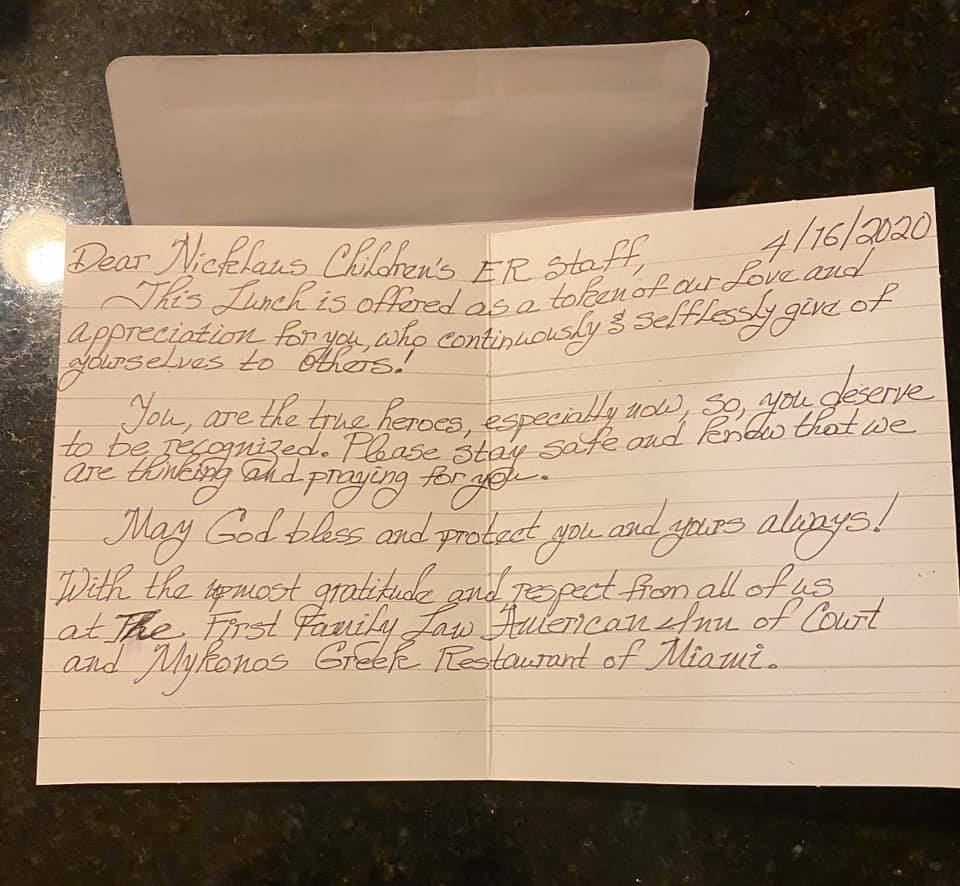 4/16/2020
Dear Nicklaus Children's ER staff,
This Lunch is offered as a token of our Love and
appreciation for you, who continuously & selflessly give of
yourselves to others!
You, are the true heroes, especially now, so, you deserve
to be recognized. Please stay safe and know that we
are thinking and praying for you.
May God bless and protect you and yours always!
With the upmost gratitude and respect from all of us
at The First Family Law American Inn of Court
and Mykonos Greek Restaurant of Miami.